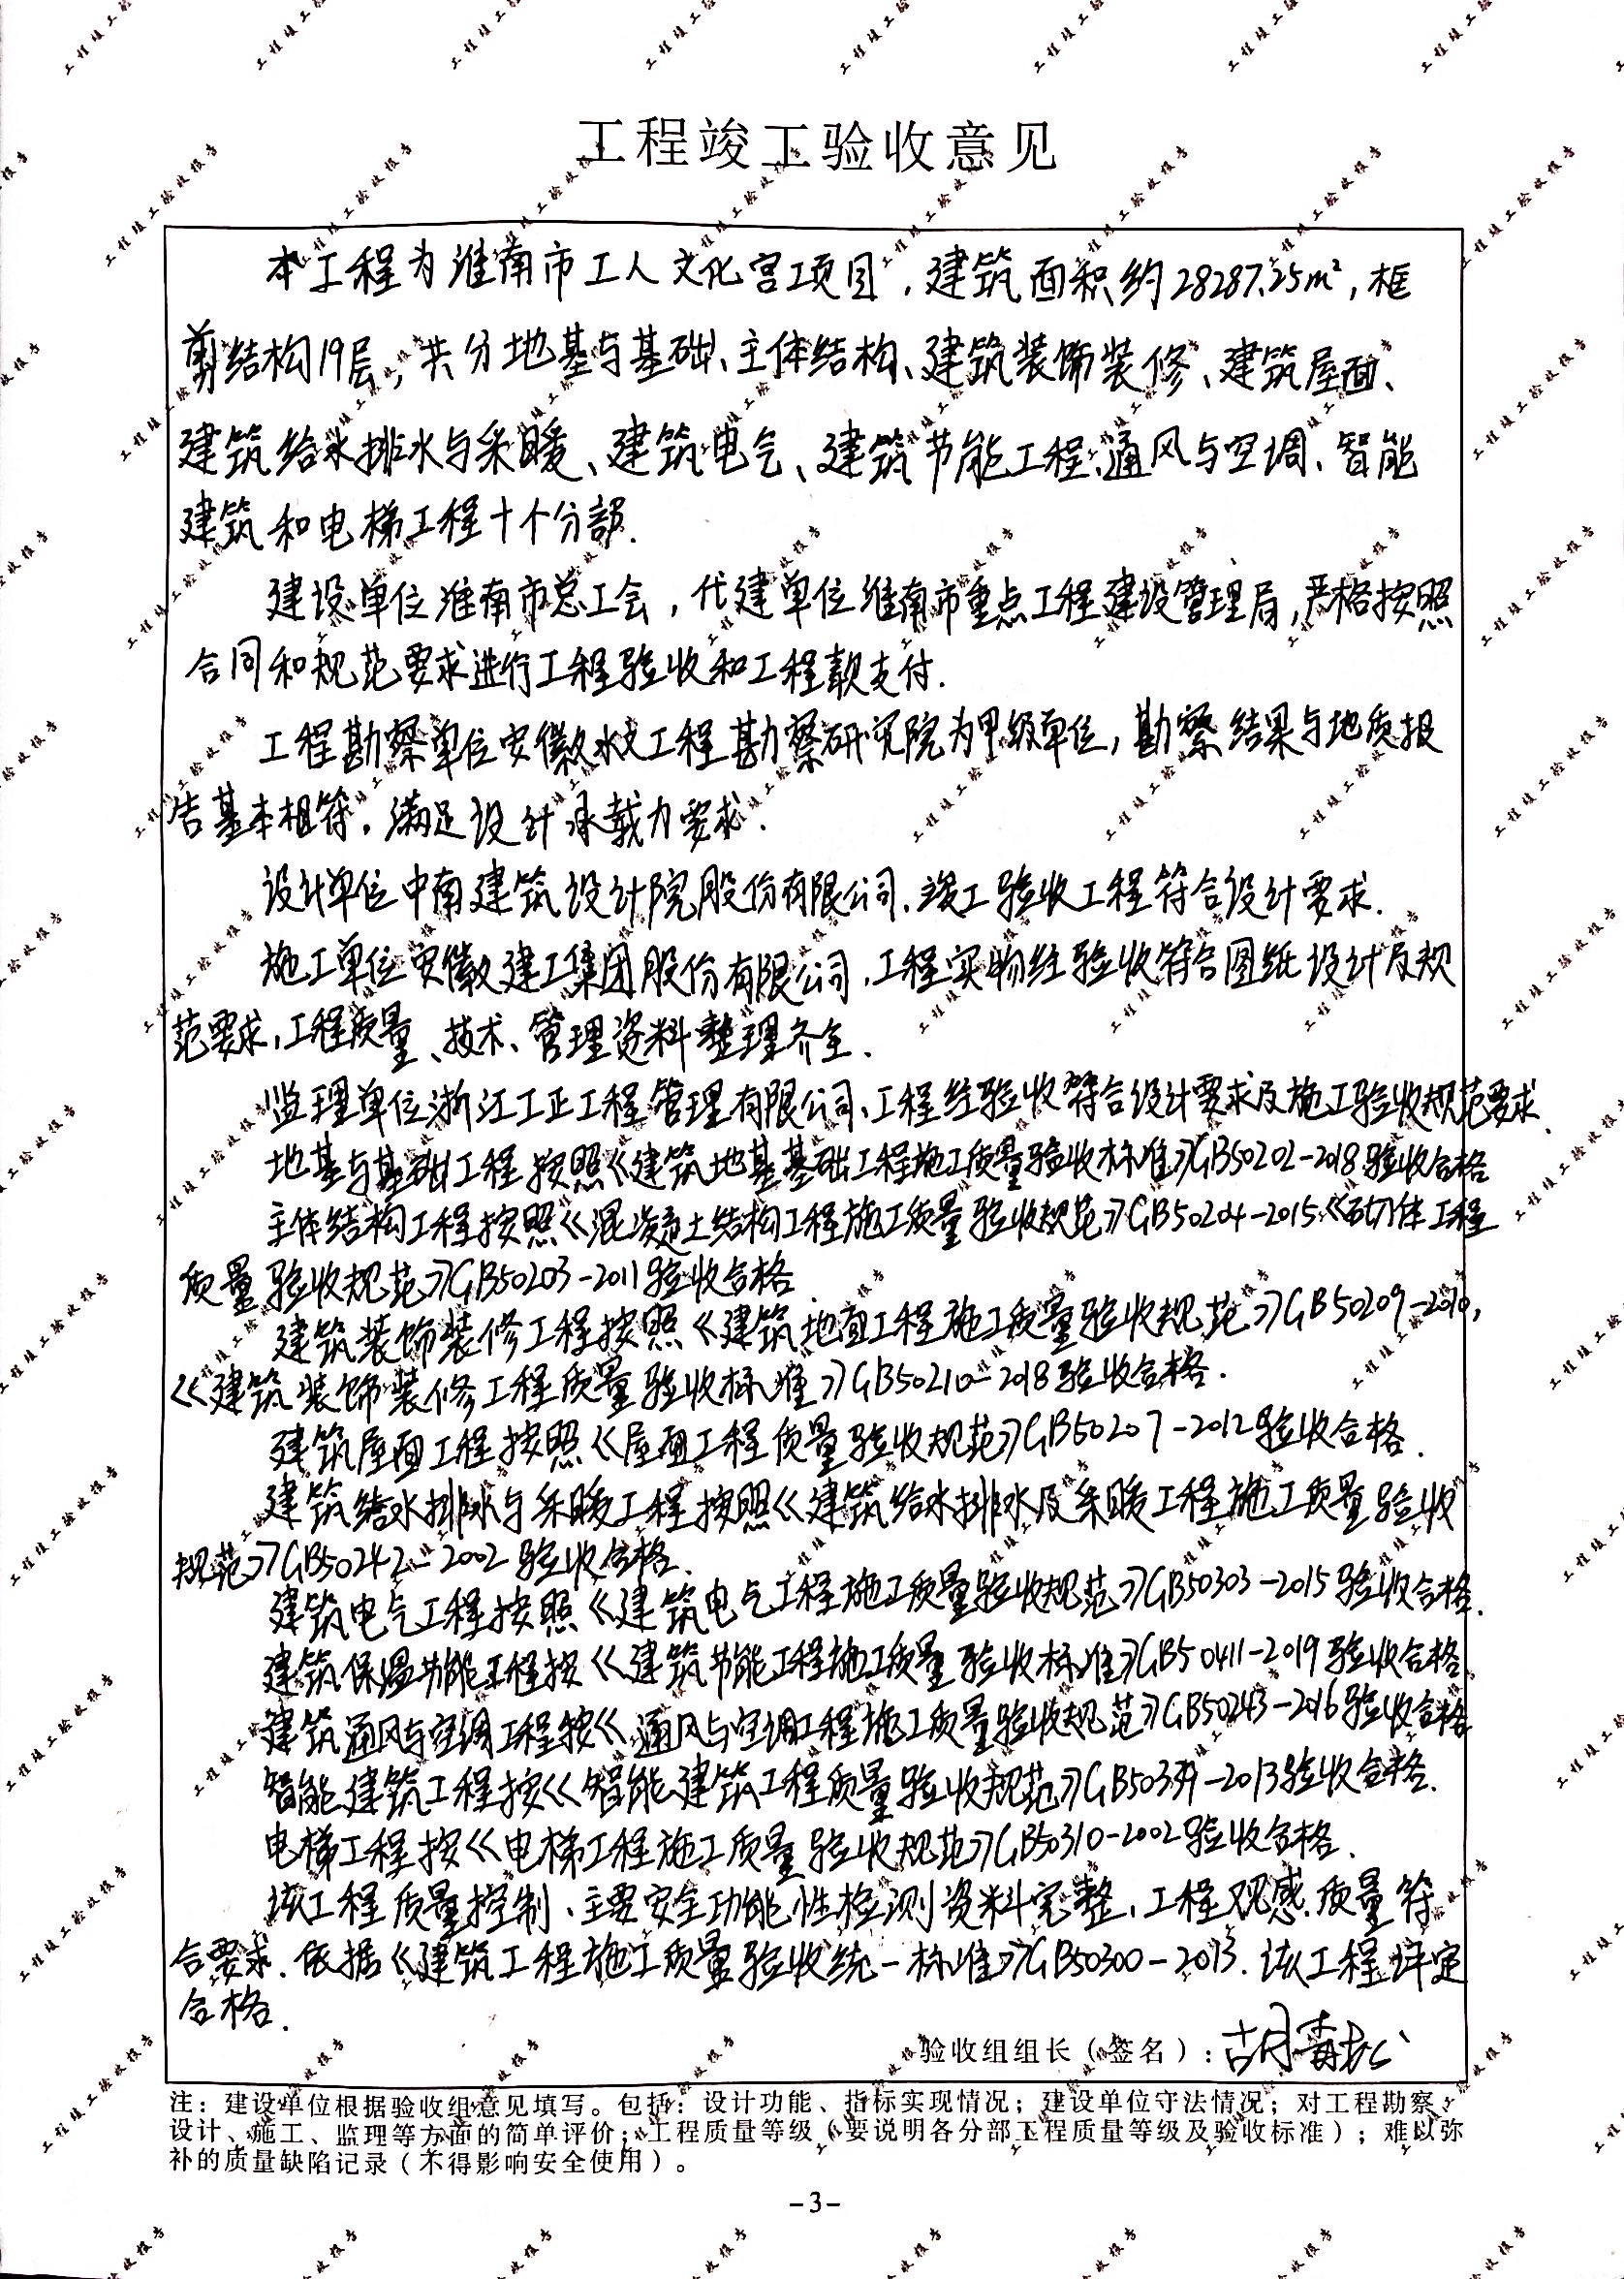 工程竣工验收意见
本工程为淮南市工人文化宫项目,建筑面积约28287.25m²,框
剪结构19层,共分地基与基础、主体结构、建筑装饰装修、建筑屋面、
建筑给水排水与采暖、建筑电气、建筑节能工程、通风与空调、智能
建筑和电梯工程十个分部.
建设单位淮南市总工会,代建单位淮南市重点工程建设管理局,严格按照
合同和规范要求进行工程验收和工程款支付.
工程勘察单位安徽水文工程勘察研究院为甲级单位,勘察结果与地质报
告基本相符,满足设计承载力要求.
设计单位中南建筑设计院股份有限公司,竣工验收工程符合设计要求.
施工单位安徽建工集团股份有限公司,工程实物经验收符合图纸设计及规
范要求,工程质量、技术、管理资料整理齐全.
监理单位浙江工正工程管理有限公司,工程经验收符合设计要求及施工验收规范要求.
地基与基础工程按照《建筑地基基础工程施工质量验收标准》GB50202-2018验收合格
主体结构工程按照《混凝土结构工程施工质量验收规范》GB50204-2015.《砌体工程
质量验收规范》GB50203-2011验收合格.
建筑装饰装修工程按照《建筑地面工程施工质量验收规范》GB50209-2010,
《建筑装饰装修工程质量验收标准》GB50210-2018验收合格.
建筑屋面工程按照《屋面工程质量验收规范》GB50207-2012验收合格.
建筑给水排水与采暖工程按照《建筑给水排水及采暖工程施工质量验收
规范》GB50242-2002验收合格.
建筑电气工程按照《建筑电气工程施工质量验收规范》GB50303-2015验收合格.
建筑保温功能工程按《建筑节能工程施工质量验收标准》GB50411-2019验收合格
建筑通风与空调工程按《通风与空调工程施工质量验收规范》GB50243-2016验收合格
智能建筑工程按《智能建筑工程质量验收规范》GB50339-2013验收合格.
电梯工程按《电梯工程施工质量验收规范》GB50310-2002验收合格.
该工程质量控制、主要安全功能性检测资料完整,工程观感质量符
合要求.依据《建筑工程施工质量验收统一标准》GB50300-2013.该工程评定
合格.
验收组组长(签名):胡
注:建设单位根据验收组意见填写。包括:设计功能、指标实现情况;建设单位守法情况;对工程勘察、
设计、施工、监理等方面的简单评价;工程质量等级(要说明各分部工程质量等级及验收标准);难以弥
补的质量缺陷记录(不得影响安全使用)。
-3-